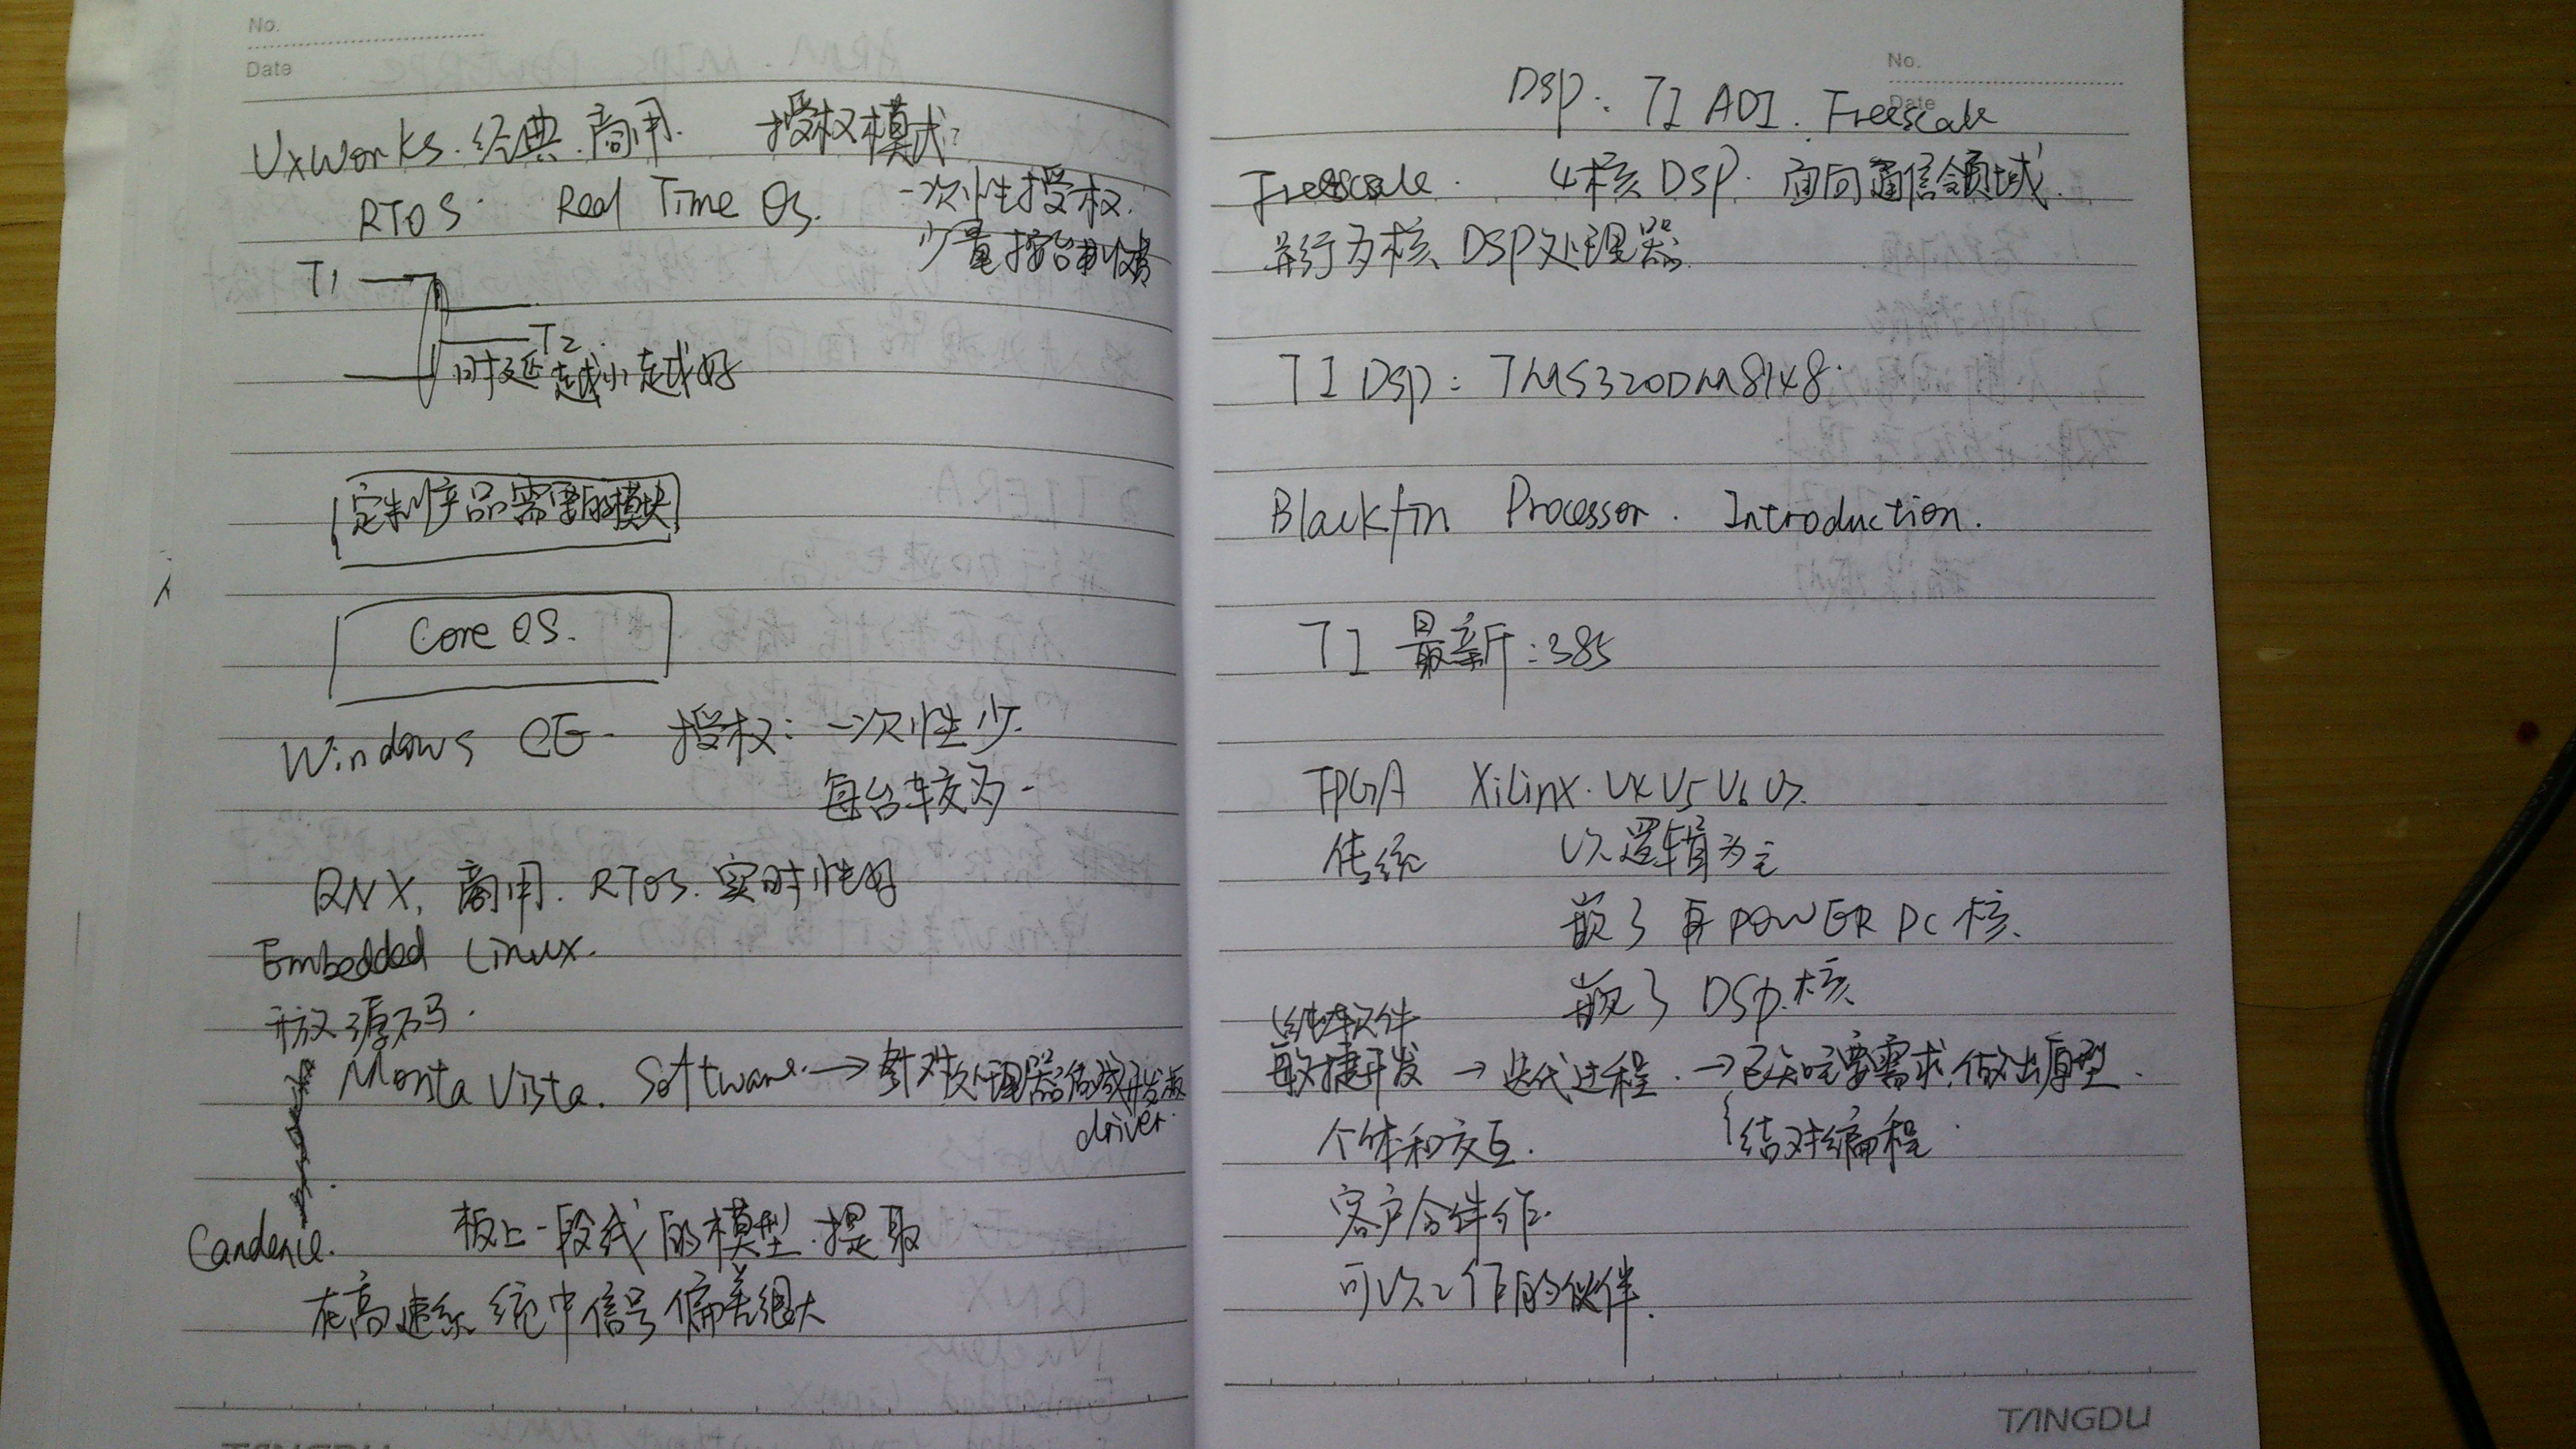 No.
Date
VxWorks. 经典. 商用. 授权模式:
一次性授权.
RTOS. Real Time Os.
少量按台收费
T1
T2
时延越小越好
定制产品需要的模块
Core OS.
Windows CE. 授权: 一次性少.
每台较多.
QNX. 商用. RTOS. 实时性好
Embedded Linux.
开放源码.
Monta Vista. Software. → 针对处理器做成开发板
driver.
Candence. 板上一段线的模型. 提取
在高速系统中信号偏差很大
No.
Date
DSP: TI ADI. Freescale
Freescale. 4核DSP. 面向通信领域.
并行多核DSP处理器.
TI DSP: TMS320DM8148.
Blackfin Processor. Introduction.
TI 最新: 385
FPGA Xilinx. V4 V5 V6 V7.
传统 以逻辑为主
嵌了 POWER PC核.
嵌了 DSP.核.
纯软件
敏捷开发 → 迭代过程. → 已知主要需求, 做出原型.
个体和交互. 结对编程.
客户合作.
可以工作的伙伴.
TANGDU
TANGDU